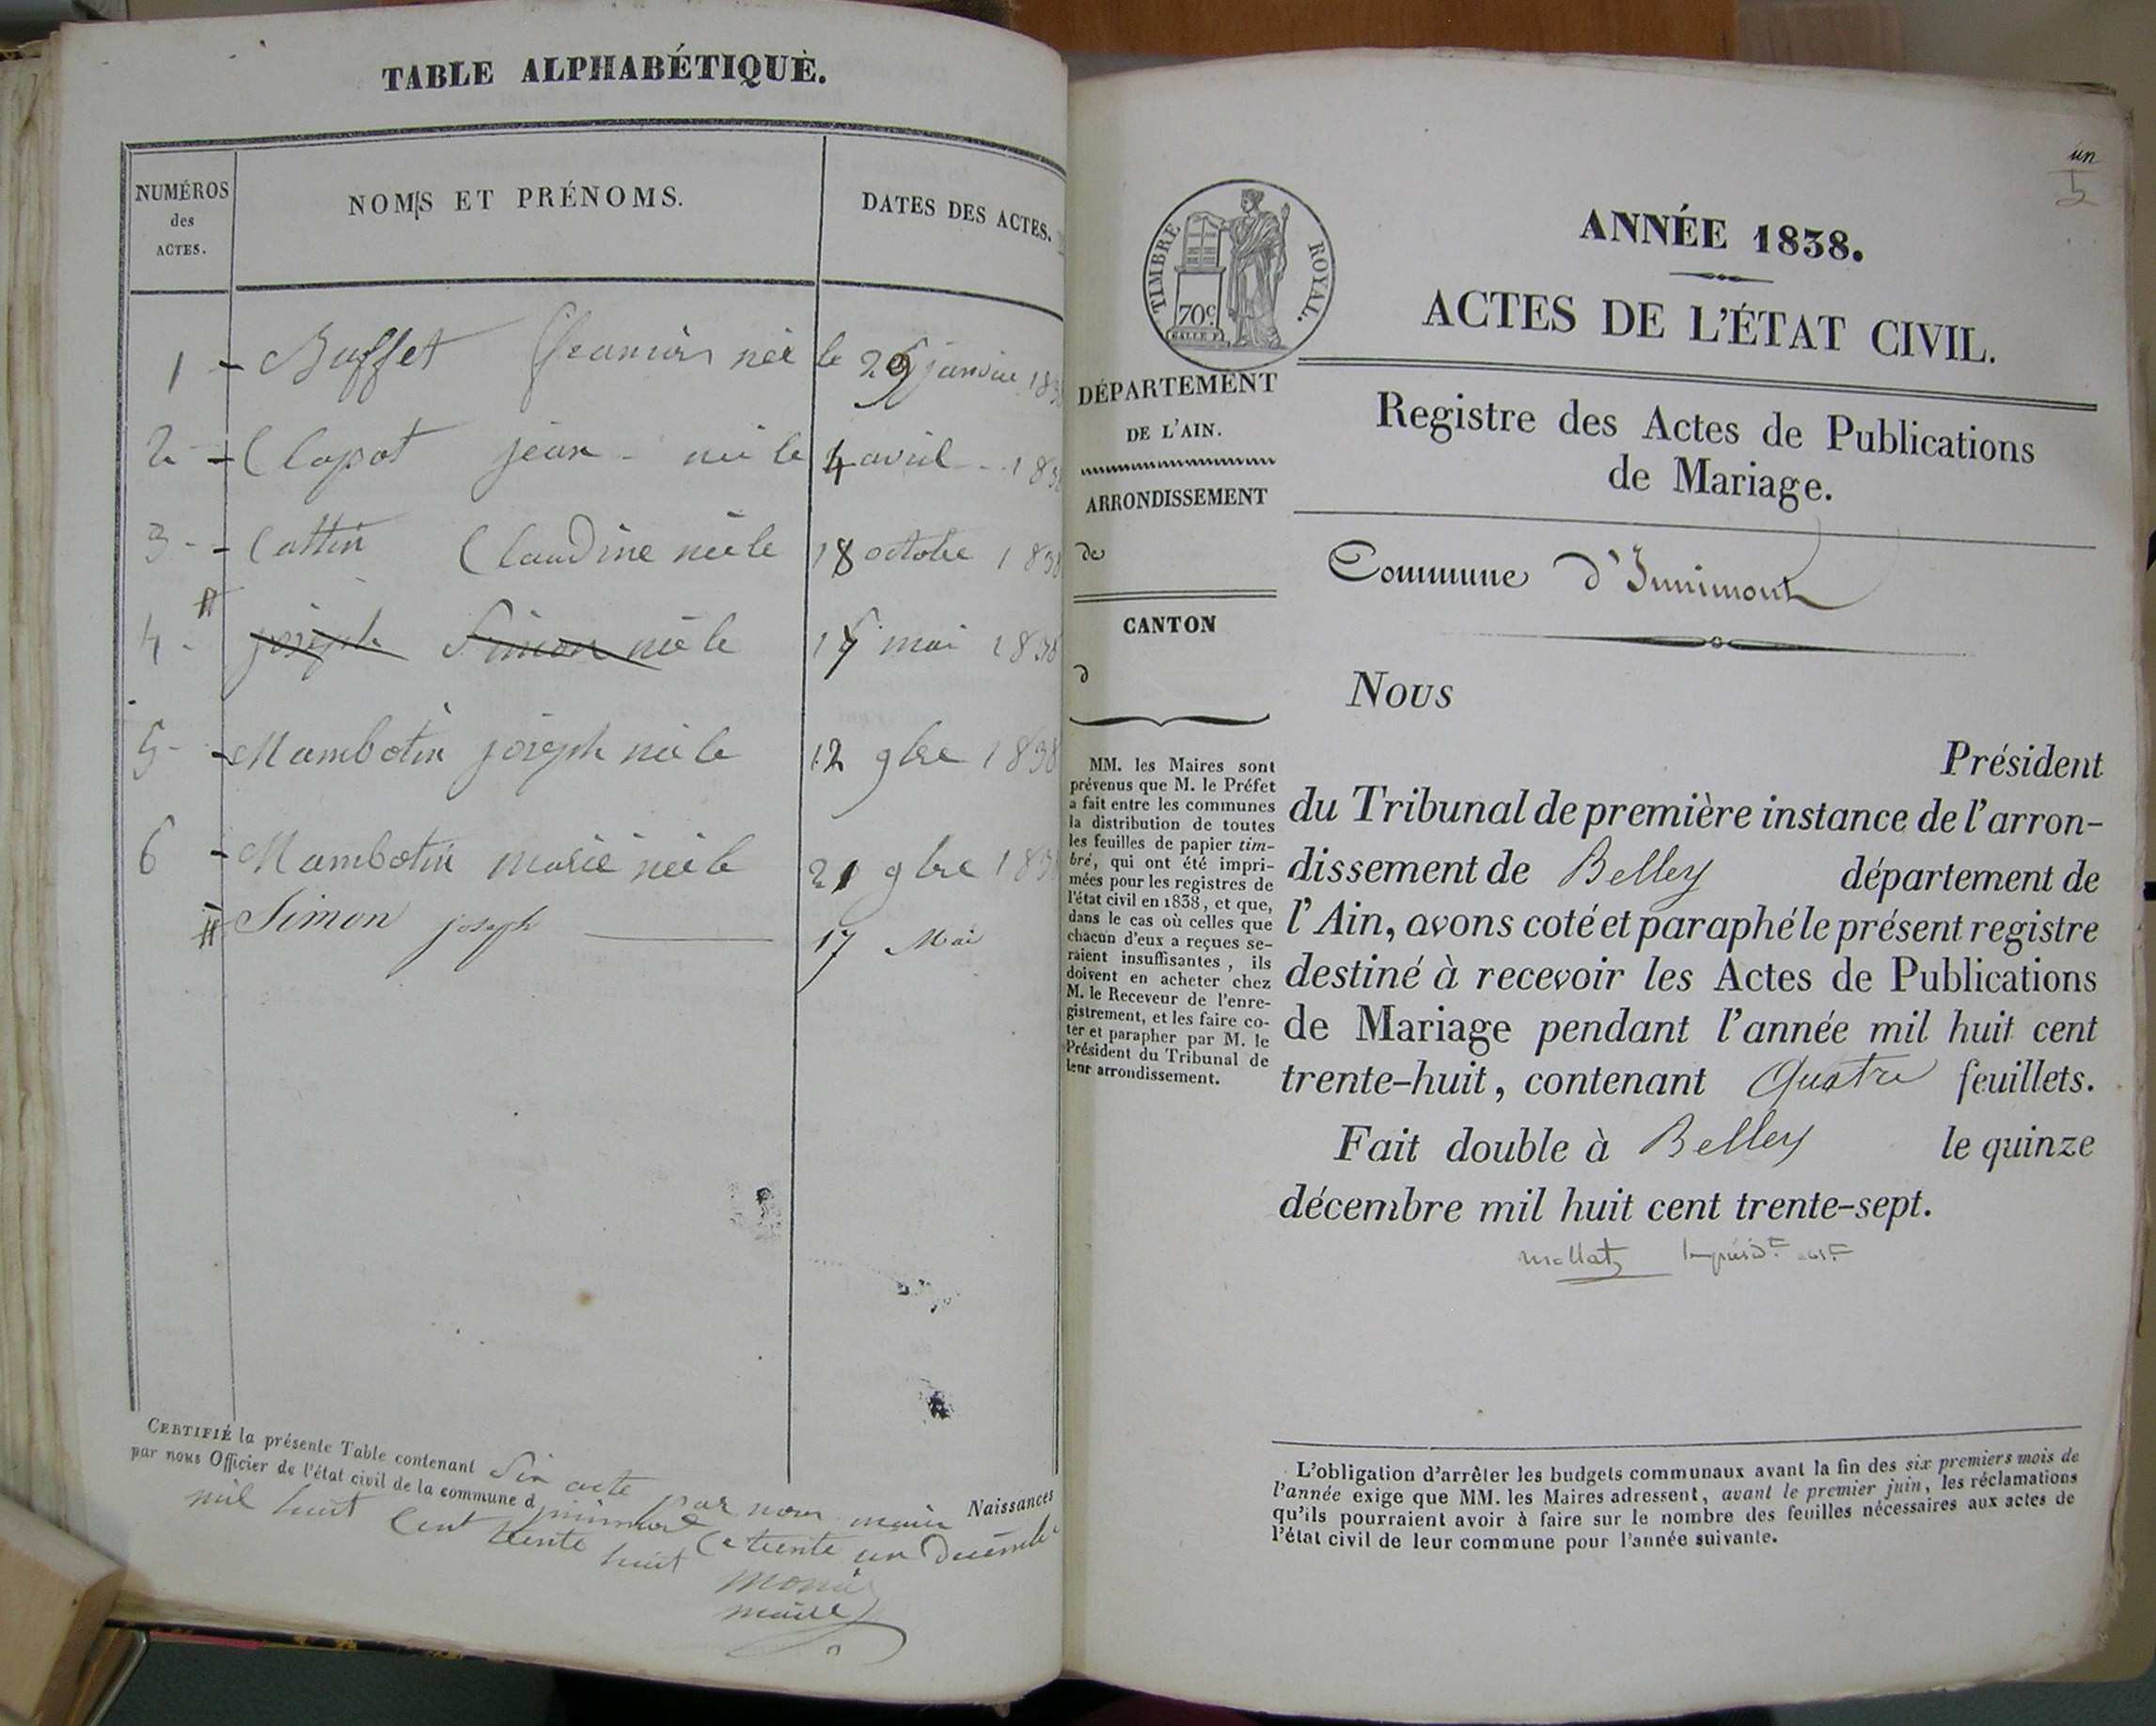 TABLE ALPHABÉTIQUE.
NUMÉROS
des
ACTES.
NOMS ET PRÉNOMS.
DATES DES ACTES.
1 - Buffet né le 29 janvier 183
2 - Clapot jean - né le 4 avril - 183
3 - - Cottin Claudine née le 18 octobre 1838
#
4 - joseph Simon né le 17 mai 1838
5 - - Mambotin joseph né le 12 9bre 1838
6 - Mambotin marie née le 21 9bre 183
# Simon joseph 17 Mai
CERTIFIÉ la présente Table contenant Six acte par nous maire Naissances
par nous Officier de l'état civil de la commune d le trente un décembre
mil huit Cent trente huit
maire
un
TIMBRE ROYAL.
70c.
ANNÉE 1838.
ACTES DE L'ÉTAT CIVIL.
DÉPARTEMENT
DE L'AIN.
ARRONDISSEMENT
de
CANTON
d
MM. les Maires sont
prévenus que M. le Préfet
a fait entre les communes
la distribution de toutes
les feuilles de papier tim-
bré, qui ont été impri-
mées pour les registres de
l'état civil en 1838, et que,
dans le cas où celles que
chacun d'eux a reçues se-
raient insuffisantes, ils
doivent en acheter chez
M. le Receveur de l'enre-
gistrement, et les faire co-
ter et parapher par M. le
Président du Tribunal de
leur arrondissement.
Registre des Actes de Publications
de Mariage.
Commune d'Innimont
Nous
Président
du Tribunal de première instance de l'arron-
dissement de Belley département de
l'Ain, avons coté et paraphé le présent registre
destiné à recevoir les Actes de Publications
de Mariage pendant l'année mil huit cent
trente-huit, contenant Quatre feuillets.
Fait double à Belley le quinze
décembre mil huit cent trente-sept.
L'obligation d'arrêter les budgets communaux avant la fin des six premiers mois de
l'année exige que MM. les Maires adressent, avant le premier juin, les réclamations
qu'ils pourraient avoir à faire sur le nombre des feuilles nécessaires aux actes de
l'état civil de leur commune pour l'année suivante.